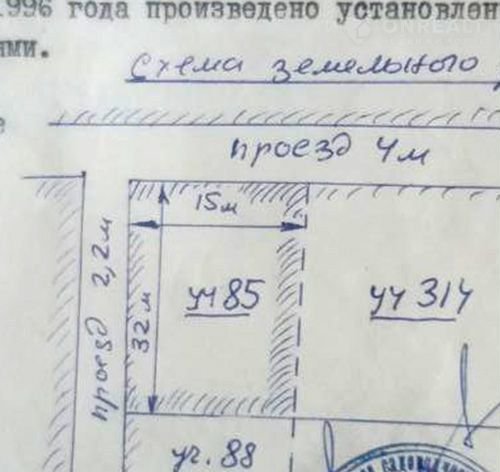 1996 года произведено
ями.
Схема земельного
проезд 4м
15м
проезд 2,2м
32м
уч 85
уч 314
уч. 88